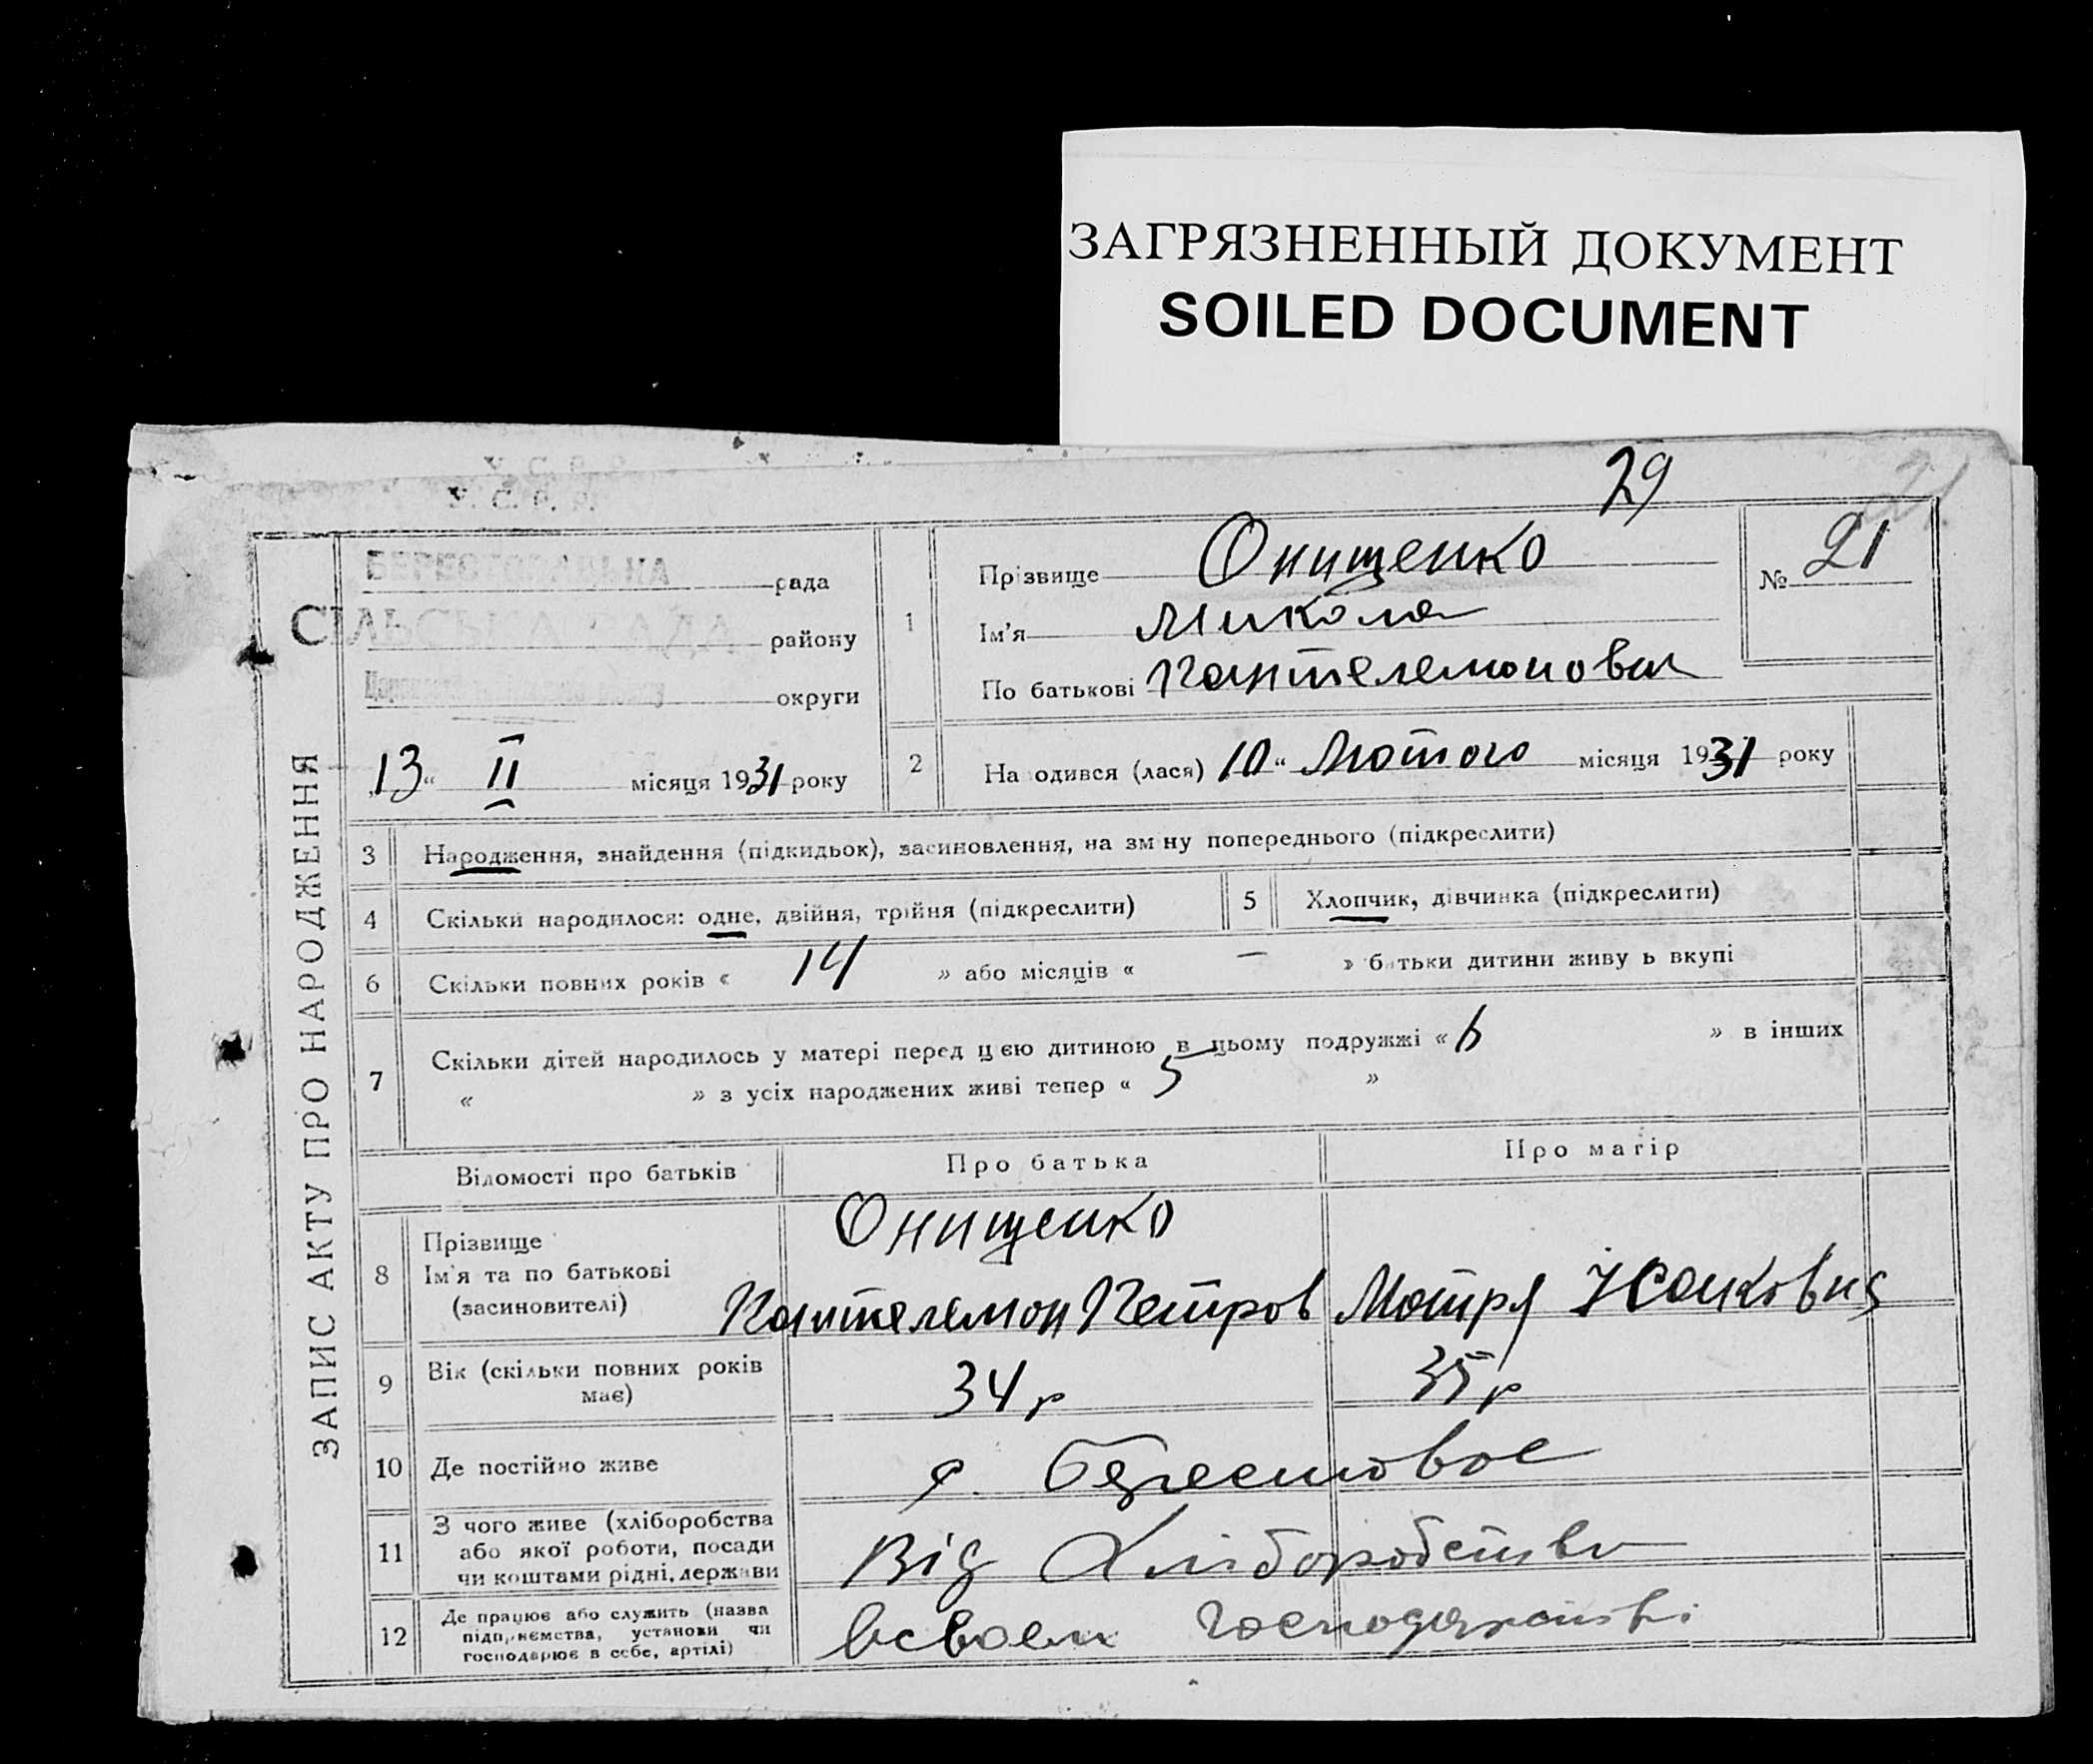 ЗАГРЯЗНЕННЫЙ ДОКУМЕНТ
SOILED DOCUMENT
29
21
У. С. Р. Р.
У. С. Р. Р.
ЗАПИС АКТУ ПРО НАРОДЖЕННЯ
рада
СІЛЬСЬКА РАДА району
округи
„13“ II місяця 1931 року
1 Прізвище Онищенко
Ім'я Микола
По батькові Пантелемонович
№ 21
2 На одився (лася) 10 “ Лютого місяця 1931 року
3 Народження, знайдення (підкидьок), засиновлення, на зм ну попереднього (підкреслити)
4 Скільки народилося: одне, двійня, трійня (підкреслити)
5 Хлопчик, дівчинка (підкреслити)
6 Скільки повних років « 14 » або місяців « — » батьки дитини живу ь вкупі
7 Скільки дітей народилось у матері перед цією дитиною в цьому подружжі « 6 » в інших
« » з усіх народжених живі тепер « 5 »
Відомості про батьків Про батька Про матір
8 Прізвище
Ім'я та по батькові
(засиновителі)
Онищенко
Пантелемон Петров Мотря
9 Вік (скільки повних років
має)
34 р 35 р
10 Де постійно живе
с. Берестовое
11 З чого живе (хліборобства
або якої роботи, посади
чи коштами рідні, держави
Від Хліборобства
12 Де працює або служить (назва
підприємства, установи чи
господарює в себе, артілі)
всвоем господарстві